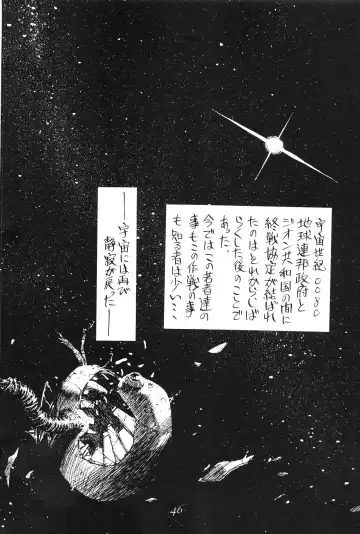 宇宙世紀0080
地球連邦政府と
ジオン共和国の間に
終戦協定が結ばれ
たのはそれからしば
らくした後のことで
あった。
今ではこの若者達の
事もこの作戦の事
も知る者は少い…
――宇宙には再び
静寂が戻った――
46